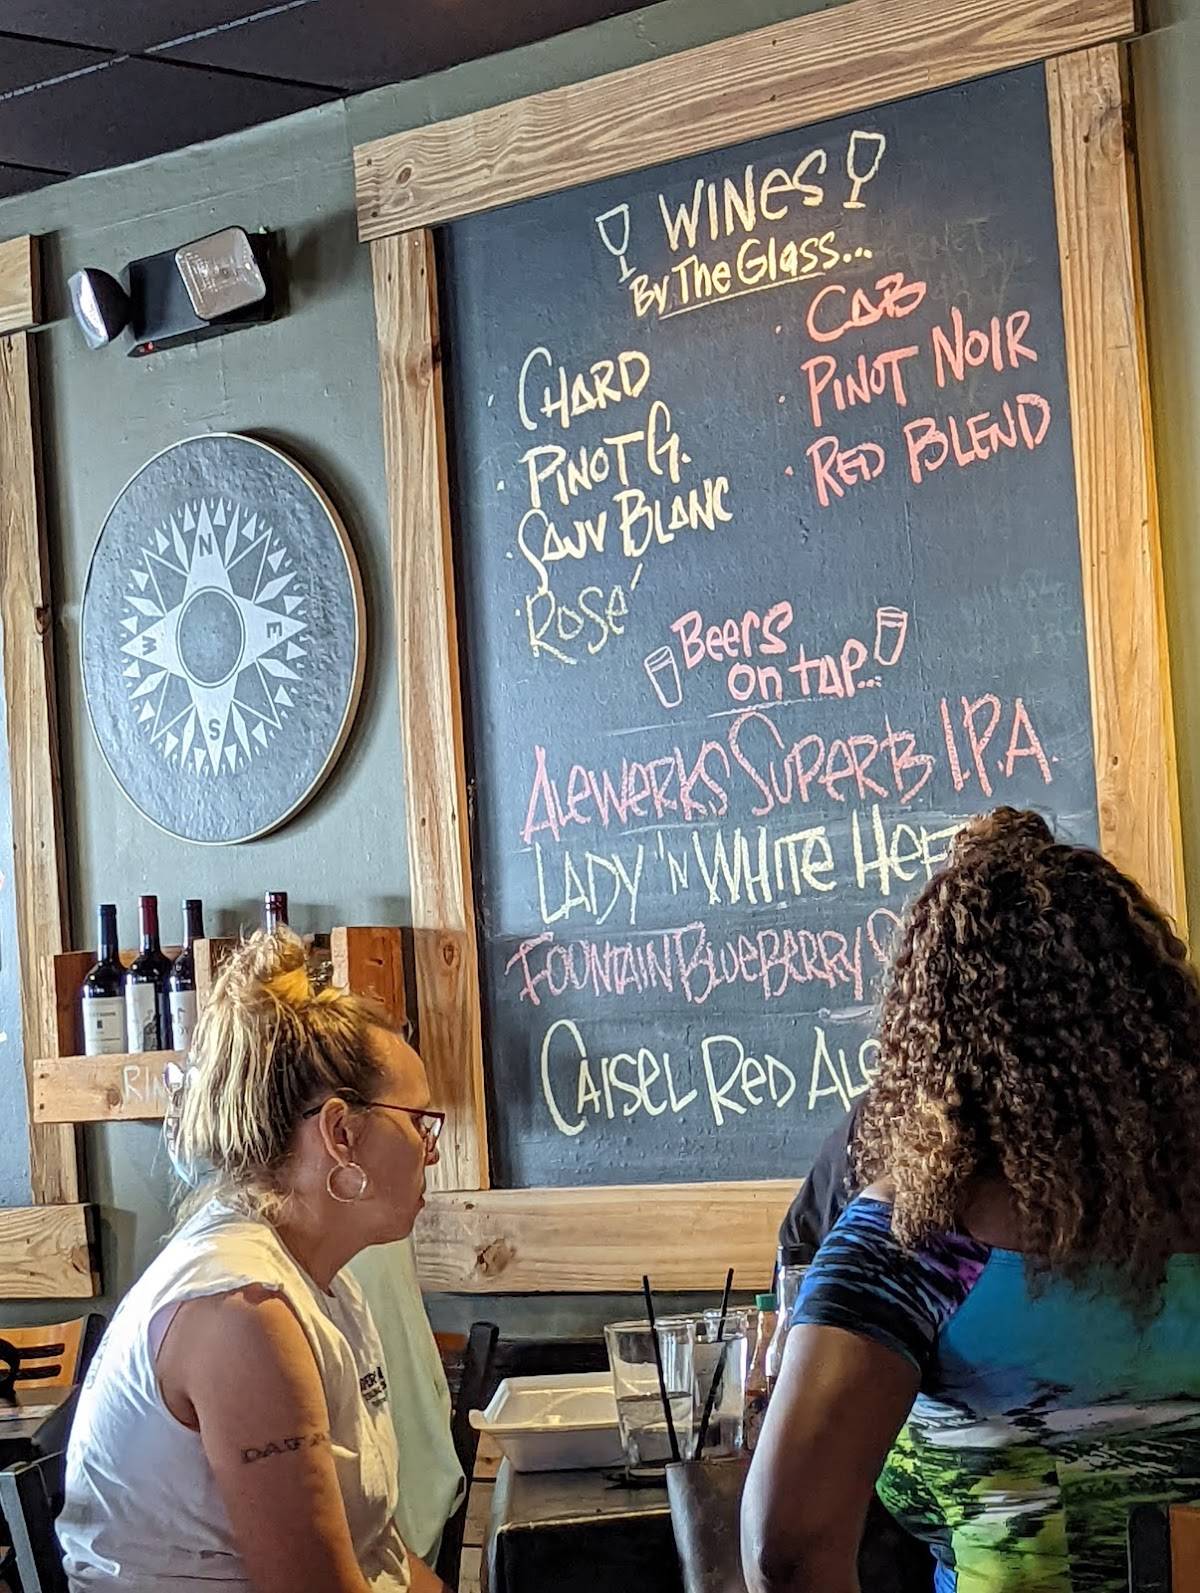 WINES
By The Glass...
· CHARD
· PINOT G.
· SAUV BLANC
· ROSÉ
· CAB
· PINOT NOIR
· RED BLEND
Beers
on tap...
ALEWERKS SUPERB I.P.A.
LADY 'N WHITE HEF
FOUNTAIN BLUEBERRY
CAISEL RED ALE
N
E
S
W